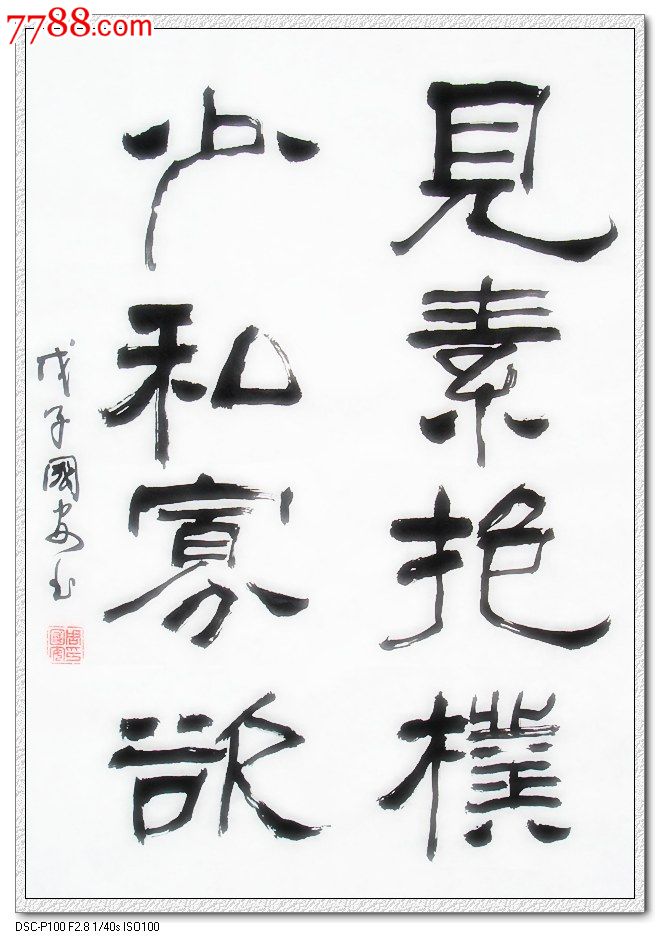 7788.com
見素抱樸
少私寡欲
戊子國安書
DSC-P100 F2.8 1/40s ISO100